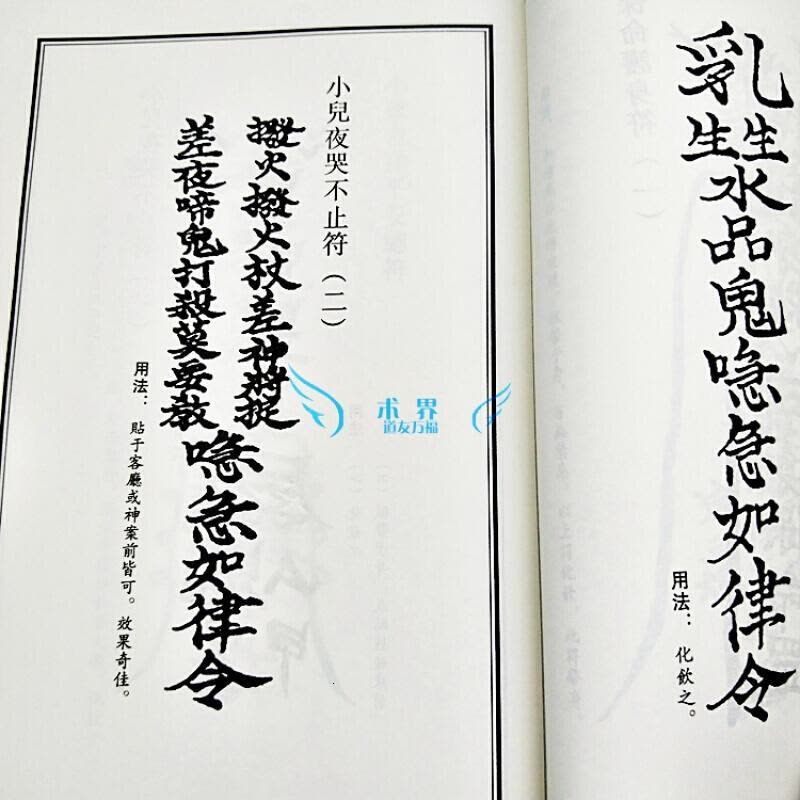 乳生生水品鬼喼急如律令
用法： 化飲之。
小兒夜哭不止符（二）
撥火撥火杖差神將捉
差夜啼鬼打殺莫要教
喼急如律令
用法： 貼于客廳或神案前皆可。效果奇佳。
术界
道友万福